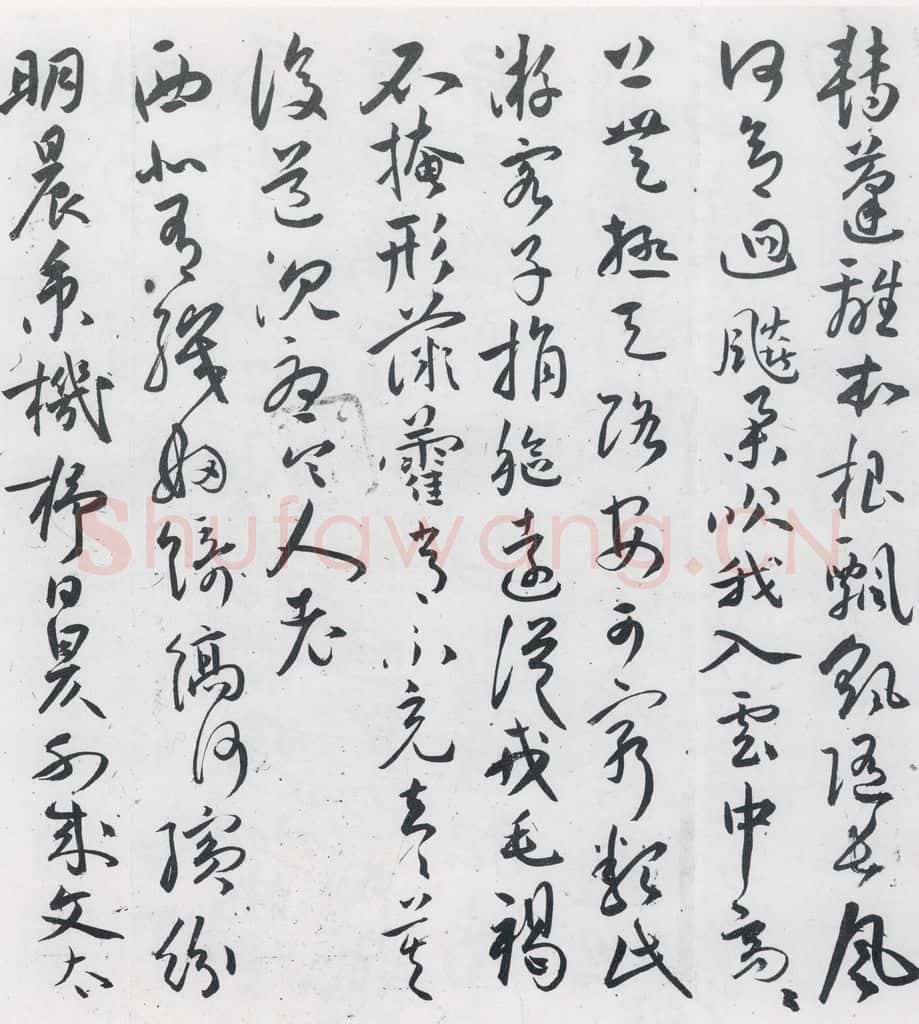 轉蓬離本根飄颻隨長風
何意迴飈舉吹我入雲中高〻
上無極天路安可窮類此
游客子捐軀遠從戎毛褐
不掩形薇藿常不充去〻莫
復道沈憂令人老
西北有織婦綺縞何繽紛
明晨秉機杼日昃不成文太
Shufawang.CN